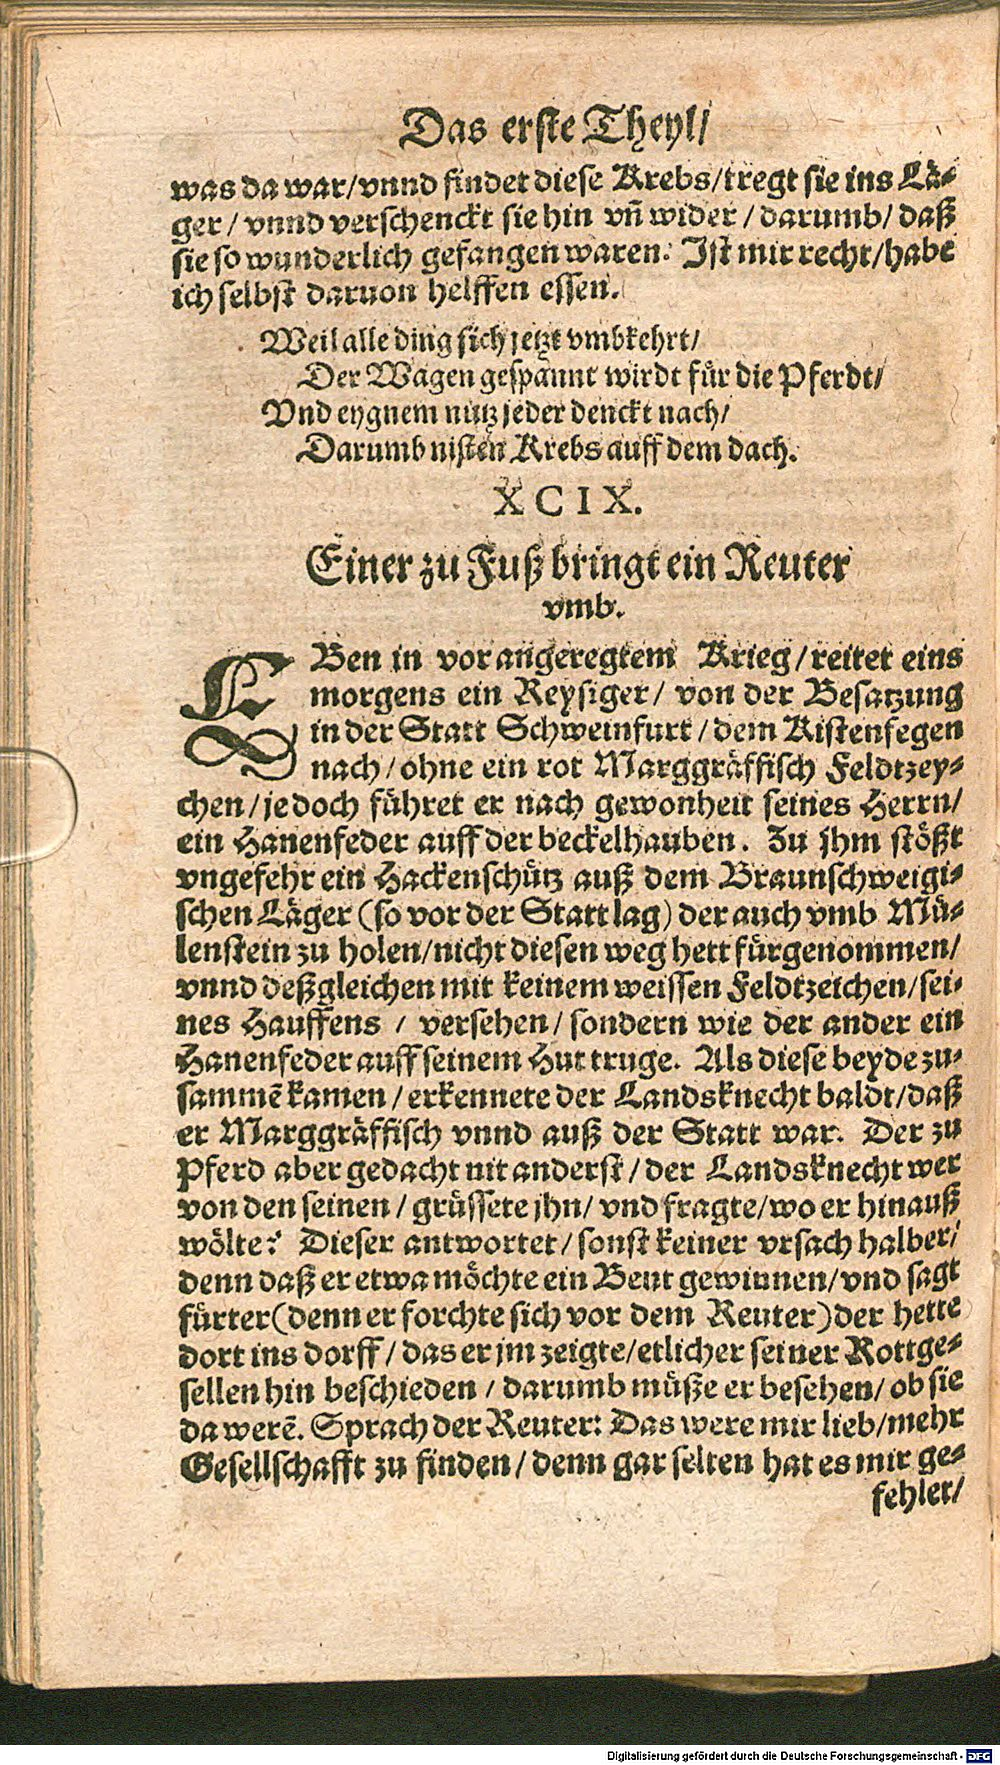 Das erste Theyl/
was da war/vnnd findet diese Krebs/tregt sie ins Lä-
ger/ vnnd verschenckt sie hin vñ wider/ darumb/ daß
sie so wunderlich gefangen waren: Ist mir recht/habe
ich selbst daruon helffen essen.
Weil alle ding sich jetzt vmbkehrt/
Der Wagen gespannt wirdt für die Pferdt/
Vnd eygnem nutz jeder denckt nach/
Darumb nisten Krebs auff dem dach.
XCIX.
Einer zu Fuß bringt ein Reuter
vmb.
EBen in vor angeregtem Krieg/reitet eins
morgens ein Reysiger/ von der Besatzung
in der Statt Schweinfurt/dem Kistenfegen
nach/ohne ein rot Marggräffisch Feldtzey-
chen/jedoch führet er nach gewonheit seines Herrn/
ein Hanenfeder auff der beckelhauben. Zu jhm stößt
vngefehr ein Hackenschütz auß dem Braunschweigi-
schen Läger (so vor der Statt lag) der auch vmb Mü-
lenstein zu holen/nicht diesen weg hett fürgenommen/
vnnd deßgleichen mit keinem weissen Feldtzeichen/sei-
nes Hauffens / versehen/ sondern wie der ander ein
Hanenfeder auff seinem Hut truge. Als diese beyde zu-
sammẽ kamen/erkennete der Landsknecht baldt/daß
er Marggräffisch vnnd auß der Statt war. Der zu
Pferd aber gedacht nit anderst/der Landsknecht wer
von den seinen/ grüssete jhn/ vnd fragte/wo er hinauß
wölte? Dieser antwortet/sonst keiner vrsach halber/
denn daß er etwa möchte ein Beut gewinnen/vnd sagt
fürter (denn er forchte sich vor dem Reuter) der hette
dort ins dorff/das er jm zeigte/etlicher seiner Rottge-
sellen hin beschieden/darumb müße er besehen/ob sie
da werẽ. Sprach der Reuter: Das were mir lieb/mehr
Gesellschafft zu finden/denn gar selten hat es mir ge-
fehlet/
Digitalisierung gefördert durch die Deutsche Forschungsgemeinschaft - DFG